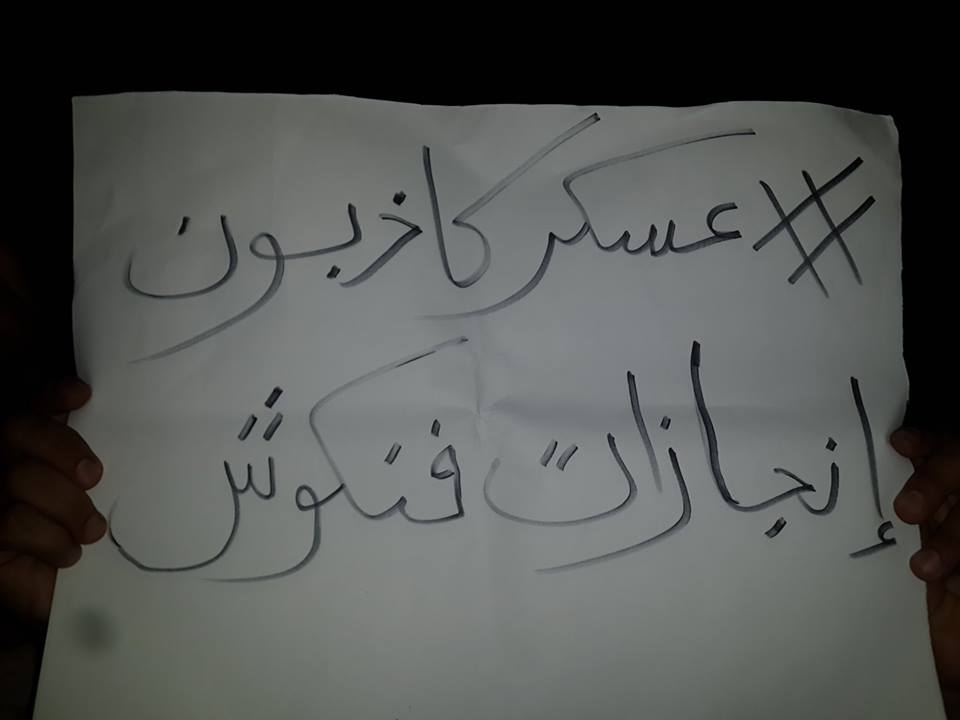 #عسكر كاذبون
إنجازات فنكوش